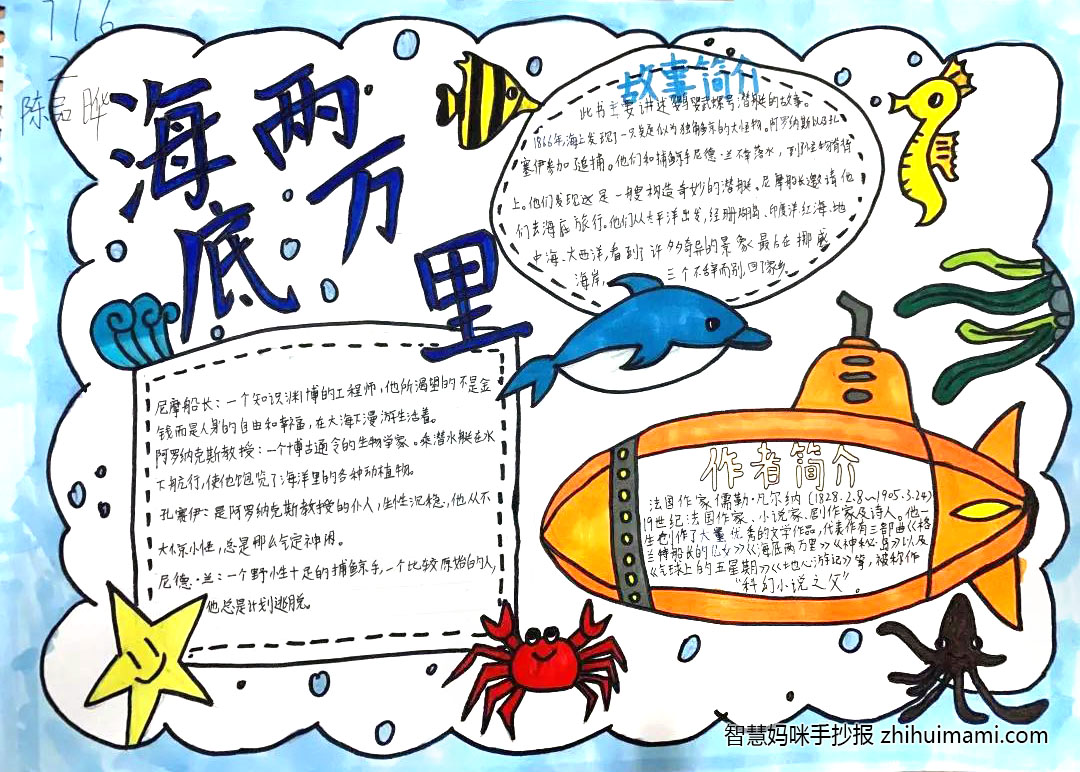 716
陈品
海底两万里
故事简介
此书主要讲述鹦鹉螺号潜艇的故事。
1866年,海上发现了一只疑是似为独角鲸的大怪物。阿罗纳斯
塞伊参加了追捕。他们和捕鲸手尼德·兰不幸落水,到怪物脊背
上。他们发现这是一艘构造奇妙的潜艇。尼摩船长邀请他
们去海底旅行。他们从太平洋出发,经珊瑚岛、印度洋、红海、地
中海、大西洋,看到了许多奇异的景象。最后在挪威
海岸,三个不辞而别,回了家乡
尼摩船长:一个知识渊博的工程师,他所渴望的不是金
钱而是人身的自由和幸福,在大海下漫游生活着。
阿罗纳克斯教授:一个博古通今的生物学家。乘潜水艇在水
下航行,使他饱览了海洋里的各种动植物。
孔赛伊:是阿罗纳克斯教授的仆人,生性沉稳,他从不
大惊小怪,总是那么气定神闲。
尼德·兰:一个野性十足的捕鲸手,一个比较原始的人,
他总是计划逃脱。
作者简介
法国作家儒勒·凡尔纳(1828.2.8~1905.3.24)
19世纪法国作家、小说家、剧作家及诗人。他一
生也创作了大量优秀的文学作品,代表作有三部曲《格
兰特船长的儿女》《海底两万里》《神秘岛》以及
《气球上的五星期》《地心游记》等,被称作
“科幻小说之父”。
智慧妈咪手抄报 zhihuimami.com